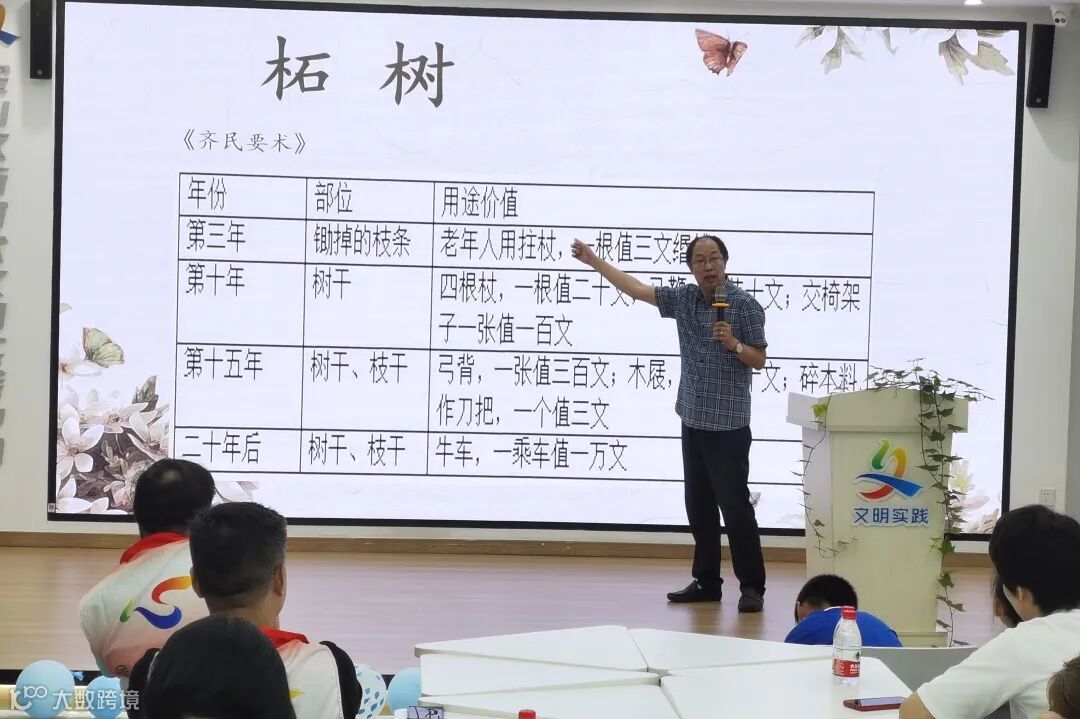 柘 树
《齐民要术》
年份 部位 用途价值
第三年 锄掉的枝条 老年人用拄杖，一根值三文
第十年 树干 四根杖，一根值二十文；十文；交椅架
子一张值一百文
第十五年 树干、枝干 弓背，一张值三百文；木屐，十文；碎本料
作刀把，一个值三文
二十年后 树干、枝干 牛车，一乘车值一万文
文明实践
大数跨境